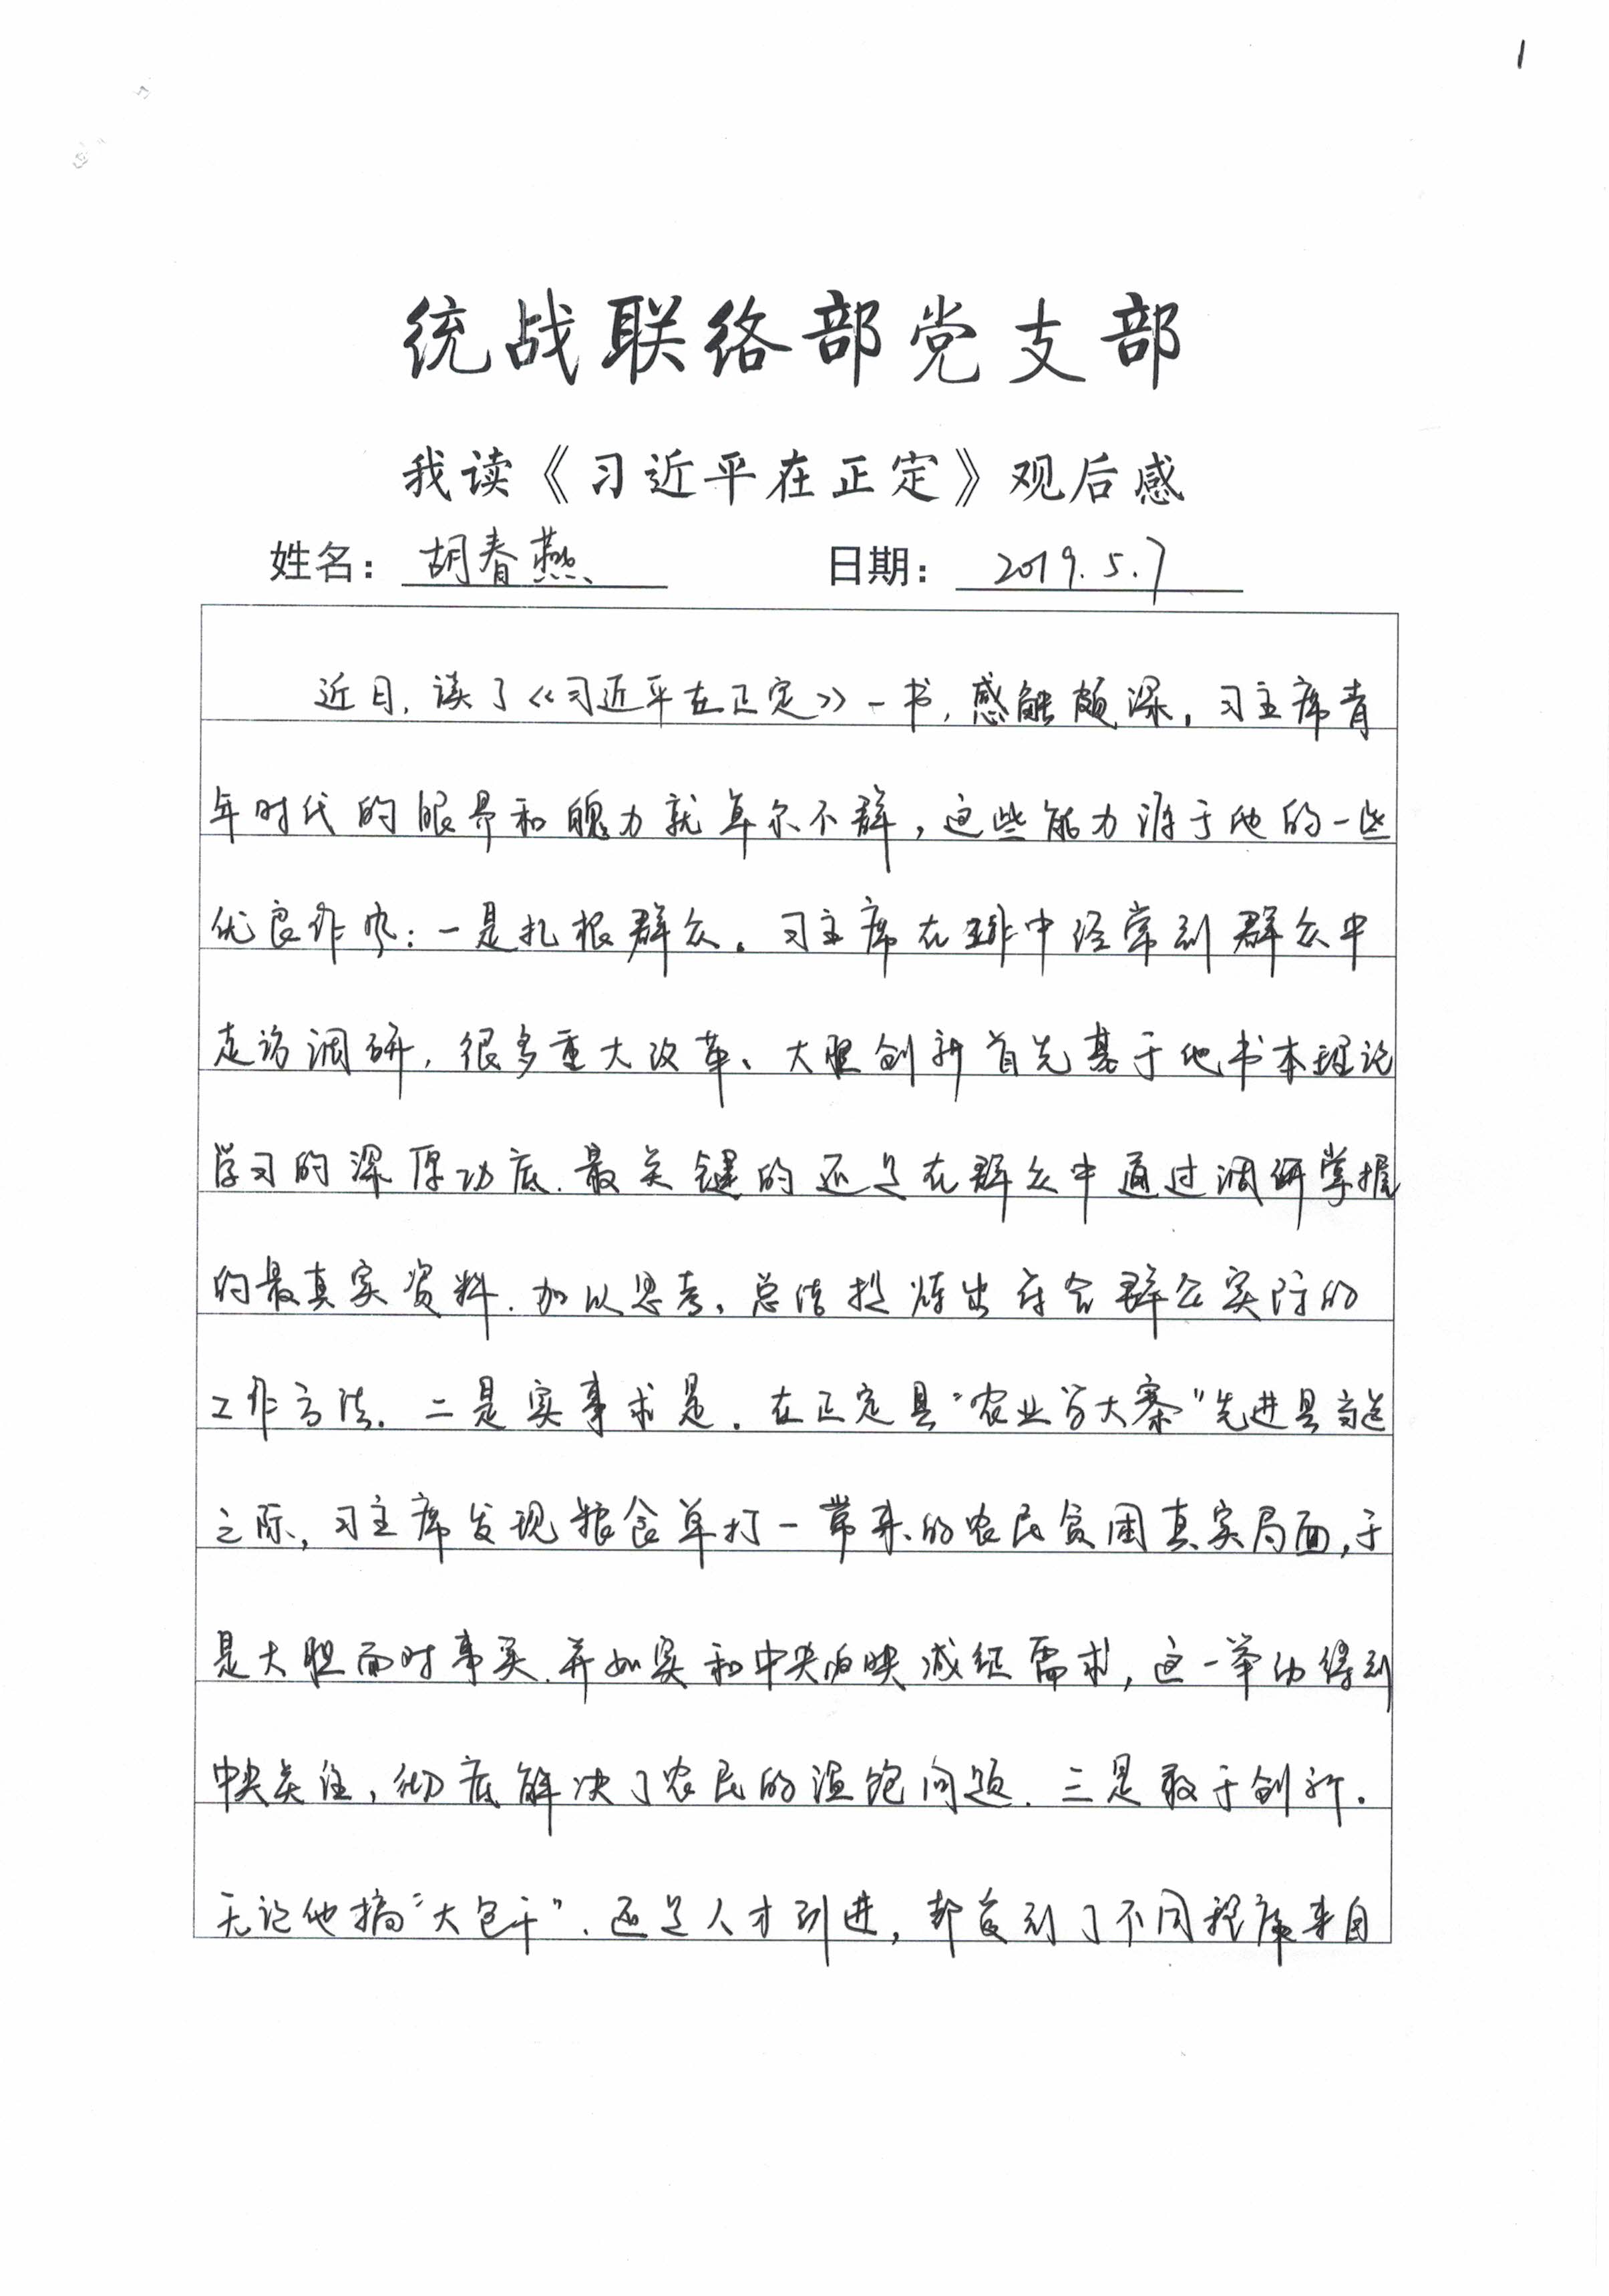 1
统战联络部党支部
我读《习近平在正定》观后感
姓名：胡春燕 日期：2019.5.7
近日，读了《习近平在正定》一书，感触颇深，习主席青
年时代的眼界和魄力就卓尔不群，这些能力源于他的一些
优良作风：一是扎根群众。习主席在工作中经常到群众中
走访调研，很多重大改革、大胆创新首先基于他书本理论
学习的深厚功底，最关键的还是在群众中通过调研掌握
的最真实资料，加以思考，总结提炼出符合群众实际的
工作方法。二是实事求是。在正定县“农业学大寨”先进县
之际，习主席发现粮食单打一带来的农民贫困真实局面，于
是大胆面对事实，并如实和中央反映减征需求，这一举动得到
中央关注，彻底解决了农民的温饱问题。三是敢于创新。
无论他搞“大包干”，还是人才引进，都受到了不同程度来自